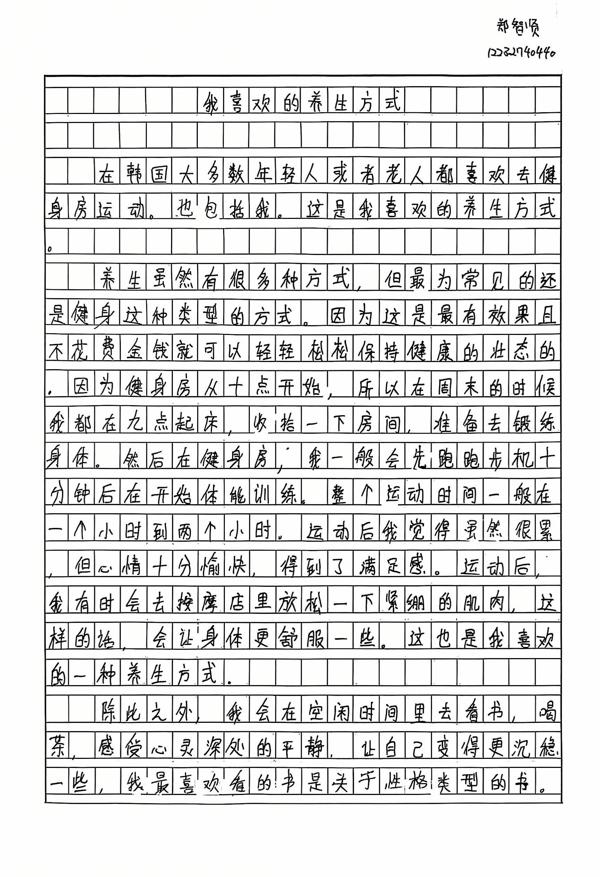 郑智贤
12232740440
我喜欢的养生方式
在韩国大多数年轻人或者老人都喜欢去健
身房运动。也包括我。这是我喜欢的养生方式
。
养生虽然有很多种方式，但最为常见的还
是健身这种类型的方式。因为这是最有效果且
不花费金钱就可以轻轻松松保持健康的壮态的
．因为健身房从十点开始，所以在周末的时候
我都在九点起床，收拾一下房间，准备去锻练
身体。然后在健身房，我一般会先跑跑步机十
分钟后在开始体能训练。整个运动时间一般在
一个小时到两个小时。运动后我觉得虽然很累
，但心情十分愉快，得到了满足感。运动后，
我有时会去按摩店里放松一下紧绷的肌肉，这
样的话，会让身体更舒服一些。这也是我喜欢
的一种养生方式．
除此之外，我会在空闲时间里去看书，喝
茶，感受心灵深处的平静，让自己变得更沉稳
一些，我最喜欢看的书是关于性格类型的书。